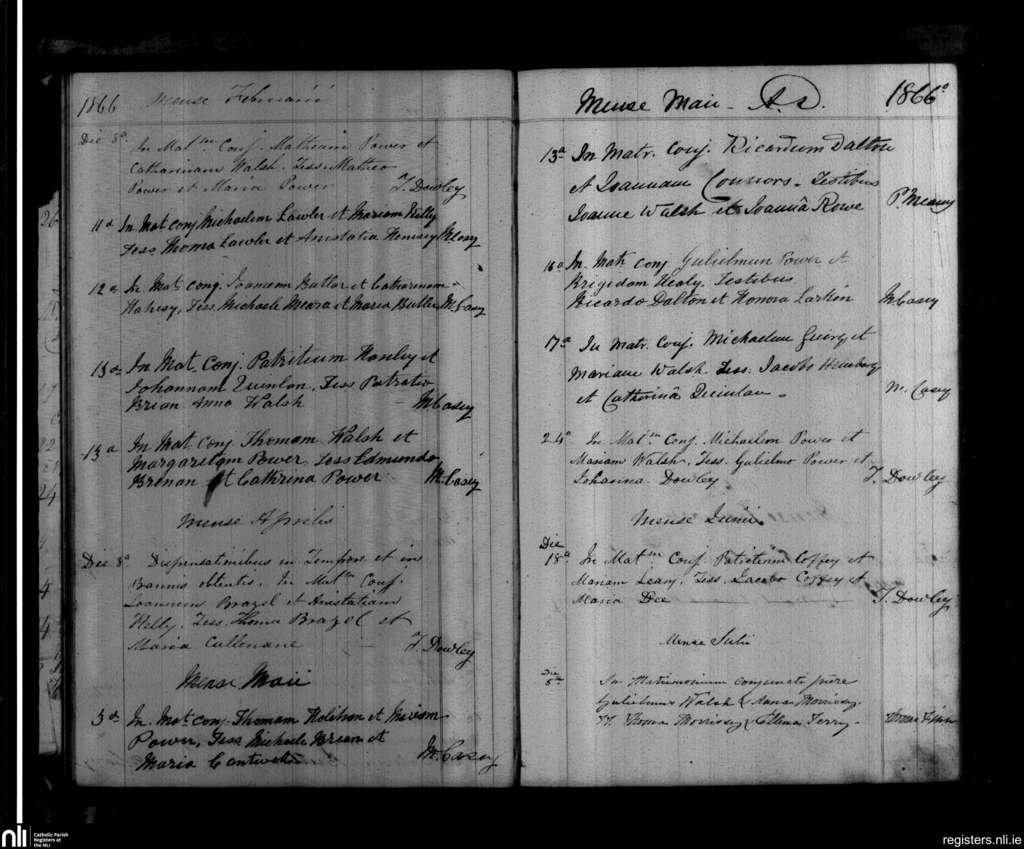 1866 Mense Februarii
Die 8ª In Matm Conj. Matheum Power et
Catharinam Walsh. Tess. Matheo
Power et Maria Power T. Dowley
11ª In Mat conj Michaelem Lawler et Mariam
Tess Thoma Lawler et Anistatia Casey
12ª In Mat conj. Joannem Butler et Catherenam
Tess. Michaele Meara et Maria Butler M. Casey
13ª In Mat. Conj. Patritium Hanley et
Johannam Quinlan. Tess Patratio
Brien Anna Walsh M Casey
13ª In Mat Conj Thomam Walsh et
Margaretam Power, Tess Edmundo
Brenan et Cathrina Power M. Casey
Mense Aprilis
Die 8ª Dispensationibus in Tempore et in
Bannis obtentis. In Matm Conj.
Joannem Brazel et Anistatiam
Kelly. Tess. Thoma Brazel et
Maria Cullenane T. Dowley
Mense Maii
5ª In Mat conj. Thomam et Miriam
Power, Tess Michaele Brien et
Maria Cantwell M. Casey
Mense Maii - 1866º
13ª In Matr. Conj. Ricardum Dalton
et Joannam Connors. Testibus
Joanne Walsh et Joannâ Rowe P. Meany
16ª In Matr conj Gulielmum Power et
Brigidam Healy. Testibus
Ricardo Dalton et Honora Larkin M Casey
17ª In Matr. Conj. Michaelem et
Mariam Walsh. Tess. Jacobo
et Catherinâ Quinlan - M. Casey
24ª In Matm Conj. Michaelem Power et
Mariam Walsh. Tess. Gulielmo Power et
Johanna Dowley T. Dowley
Mense Junii
Die
18ª In Matm Conj. Patritium Coffey et
Mariam Leary. Tess. Jacobo Coffey et
Maria Dee T. Dowley
Mense Julii
Die
5ª In Matrimonium conjuncti fuere
Gulielmus Walsh & Anna Morrissy
TT. Thoma Morrissy & Ellena Terry - Thomas